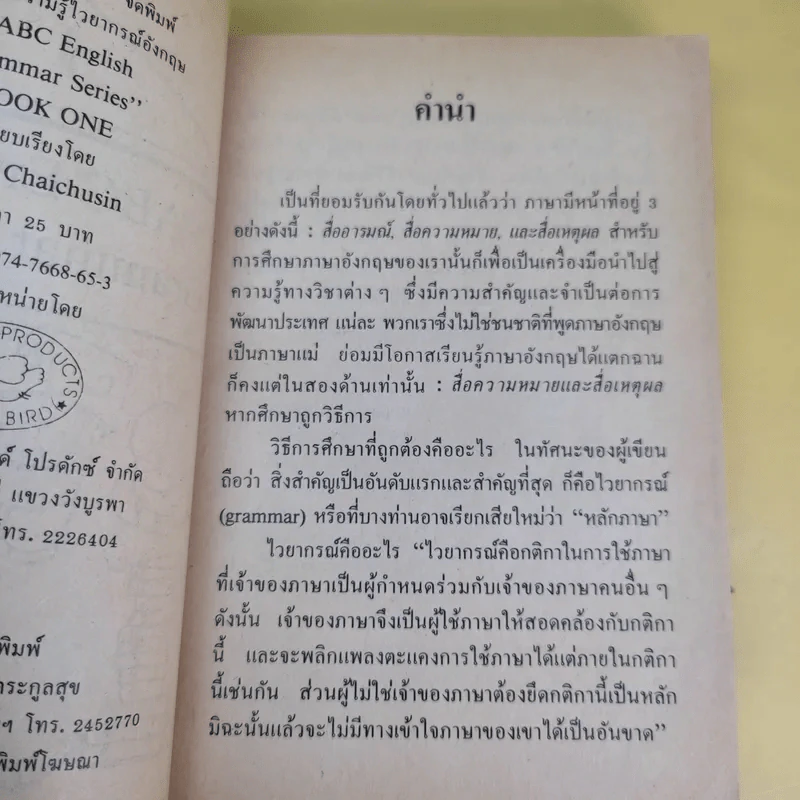 จัดพิมพ์
ความรู้ไวยากรณ์อังกฤษ
ABC English
mmar Series”
OOK ONE
ยบเรียงโดย
Chaichusin
า 25 บาท
974-7668-65-3
หน่ายโดย
PRODUCTS
BIRD
ด์ โปรดักซ์ จำกัด
แขวงวังบูรพา
โทร. 2226404
พิมพ์
ตระกูลสุข
ฯ โทร. 2452770
พิมพ์โฆษณา
คำนำ
เป็นที่ยอมรับกันโดยทั่วไปแล้วว่า ภาษามีหน้าที่อยู่ 3
อย่างดังนี้ : สื่ออารมณ์, สื่อความหมาย, และสื่อเหตุผล สำหรับ
การศึกษาภาษาอังกฤษของเรานั้นก็เพื่อเป็นเครื่องมือนำไปสู่
ความรู้ทางวิชาต่าง ๆ ซึ่งมีความสำคัญและจำเป็นต่อการ
พัฒนาประเทศ แน่ละ พวกเราซึ่งไม่ใช่ชนชาติที่พูดภาษาอังกฤษ
เป็นภาษาแม่ ย่อมมีโอกาสเรียนรู้ภาษาอังกฤษได้แตกฉาน
ก็คงแต่ในสองด้านเท่านั้น : สื่อความหมายและสื่อเหตุผล
หากศึกษาถูกวิธีการ
วิธีการศึกษาที่ถูกต้องคืออะไร ในทัศนะของผู้เขียน
ถือว่า สิ่งสำคัญเป็นอันดับแรกและสำคัญที่สุด ก็คือไวยากรณ์
(grammar) หรือที่บางท่านอาจเรียกเสียใหม่ว่า “หลักภาษา”
ไวยากรณ์คืออะไร “ไวยากรณ์คือกติกาในการใช้ภาษา
ที่เจ้าของภาษาเป็นผู้กำหนดร่วมกับเจ้าของภาษาคนอื่น ๆ
ดังนั้น เจ้าของภาษาจึงเป็นผู้ใช้ภาษาให้สอดคล้องกับกติกา
นี้ และจะพลิกแพลงตะแคงการใช้ภาษาได้แต่ภายในกติกา
นี้เช่นกัน ส่วนผู้ไม่ใช่เจ้าของภาษาต้องยึดกติกานี้เป็นหลัก
มิฉะนั้นแล้วจะไม่มีทางเข้าใจภาษาของเขาได้เป็นอันขาด”